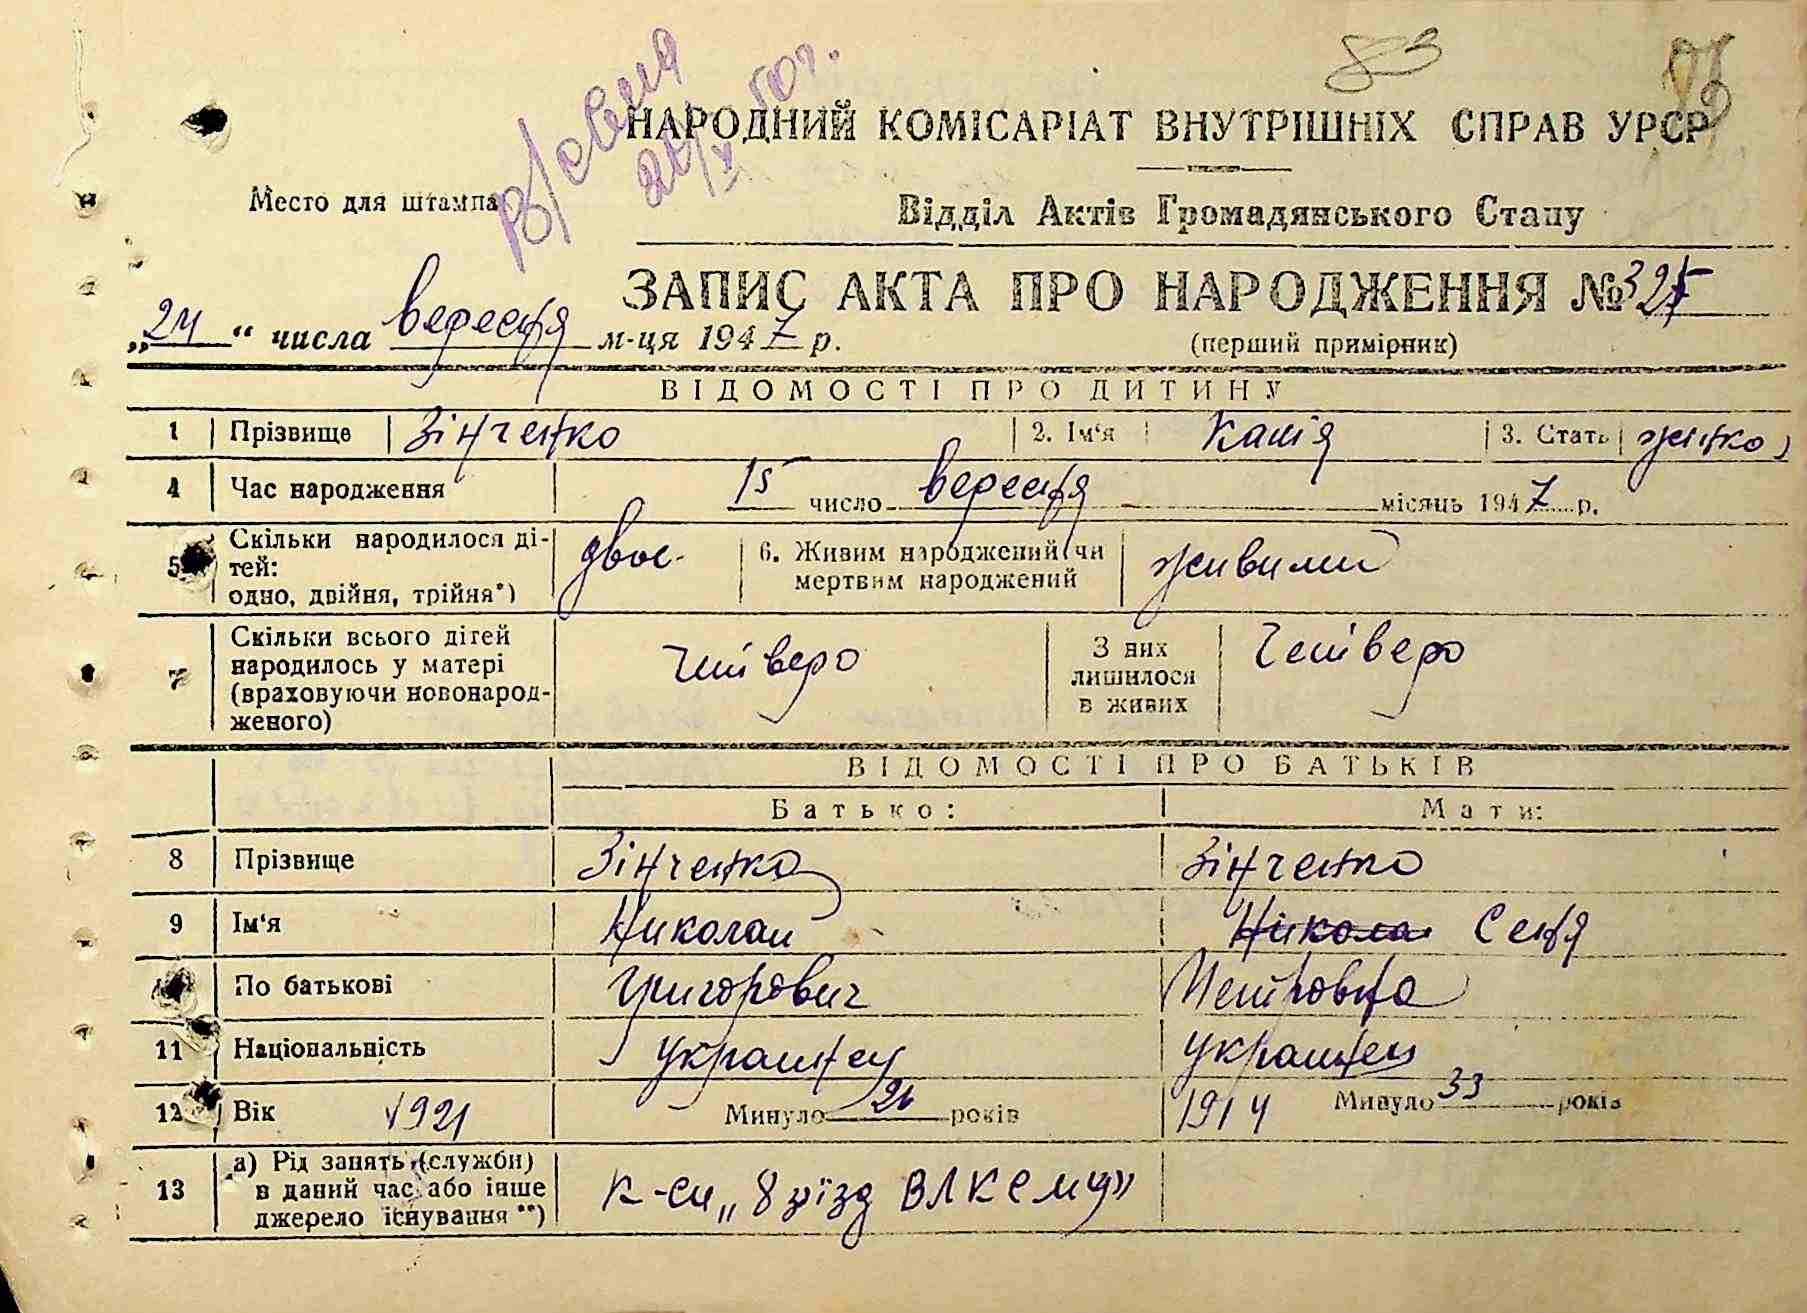 83
НАРОДНИЙ КОМІСАРІАТ ВНУТРІШНІХ СПРАВ УРСР
Место для штампа
Відділ Актів Громадянського Стану
ЗАПИС АКТА ПРО НАРОДЖЕННЯ № 325
„24“ числа вересня м-ця 1947 р.
(перший примірник)
ВІДОМОСТІ ПРО ДИТИНУ
1 Прізвище Зінченко 2. Ім‘я Катія 3. Стать жінко
4 Час народження 15 число вересня місяць 1947 р.
5 Скільки народилося ді-
тей:
одно, двійня, трійня*) двоє
6. Живим народжений чи
мертвим народжений живими
7 Скільки всього дітей
народилось у матері
(враховуючи новонарод-
женого) Четверо
З них
лишилося
в живих Четверо
ВІДОМОСТІ ПРО БАТЬКІВ
Батько: Мати:
8 Прізвище Зінченко Зінченко
9 Ім‘я Николай Никола Сеня
По батькові Григорович Петровна
11 Національність украинец украинец
12 Вік 1921 Минуло 26 років 1914 Минуло 33 років
13 а) Рід занять (служби)
в даний час або інше
джерело існування **) к-сп „8 зїзд ВЛКСМУ”